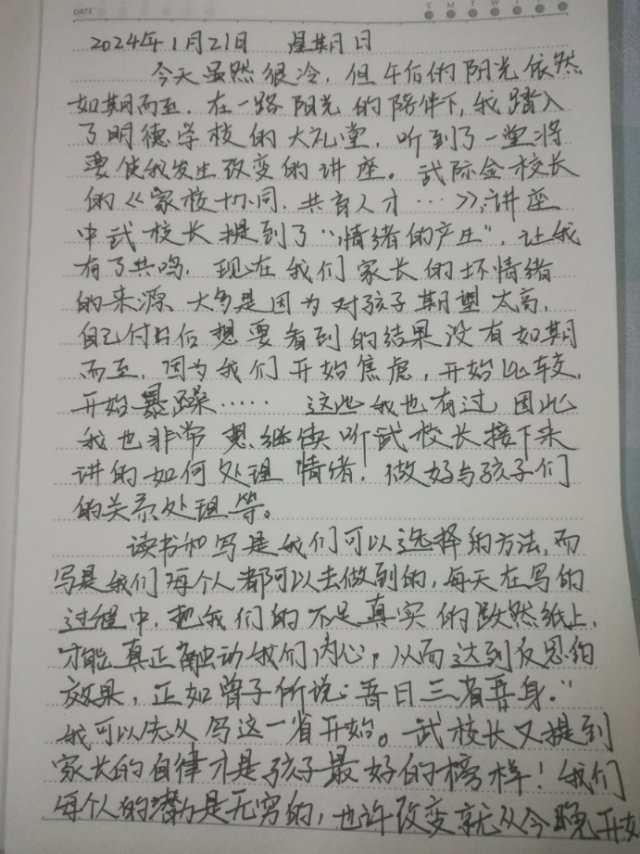 DATE
S M T W T F S
2024年1月21日 星期日
今天虽然很冷,但午后的阳光依然
如期而至,在一路阳光的陪伴下,我踏入
了明德学校的大礼堂,听到了一堂将
要使我发生改变的讲座。武际金校长
的《家校协同,共育人才…》,讲座
中武校长提到了“情绪的产生”,让我
有了共鸣,现在我们家长的坏情绪
的来源、大多是因为对孩子期望太高,
自己付出后想要看到的结果没有如期
而至,因为我们开始焦虑,开始比较,
开始暴躁…… 这些我也有过,因此
我也非常想继续听武校长接下来
讲的如何处理情绪,做好与孩子们
的关系处理等。
读书和写是我们可以选择的方法,而
写是我们每个人都可以去做到的,每天在写的
过程中,把我们的不足真实的跃然纸上,
才能真正触动我们内心,从而达到反思的
效果,正如曾子所说:“吾日三省吾身。”
我可以先从写这一省开始。武校长又提到
家长的自律才是孩子最好的榜样!我们
每个人的潜力是无穷的,也许改变就从今晚开始